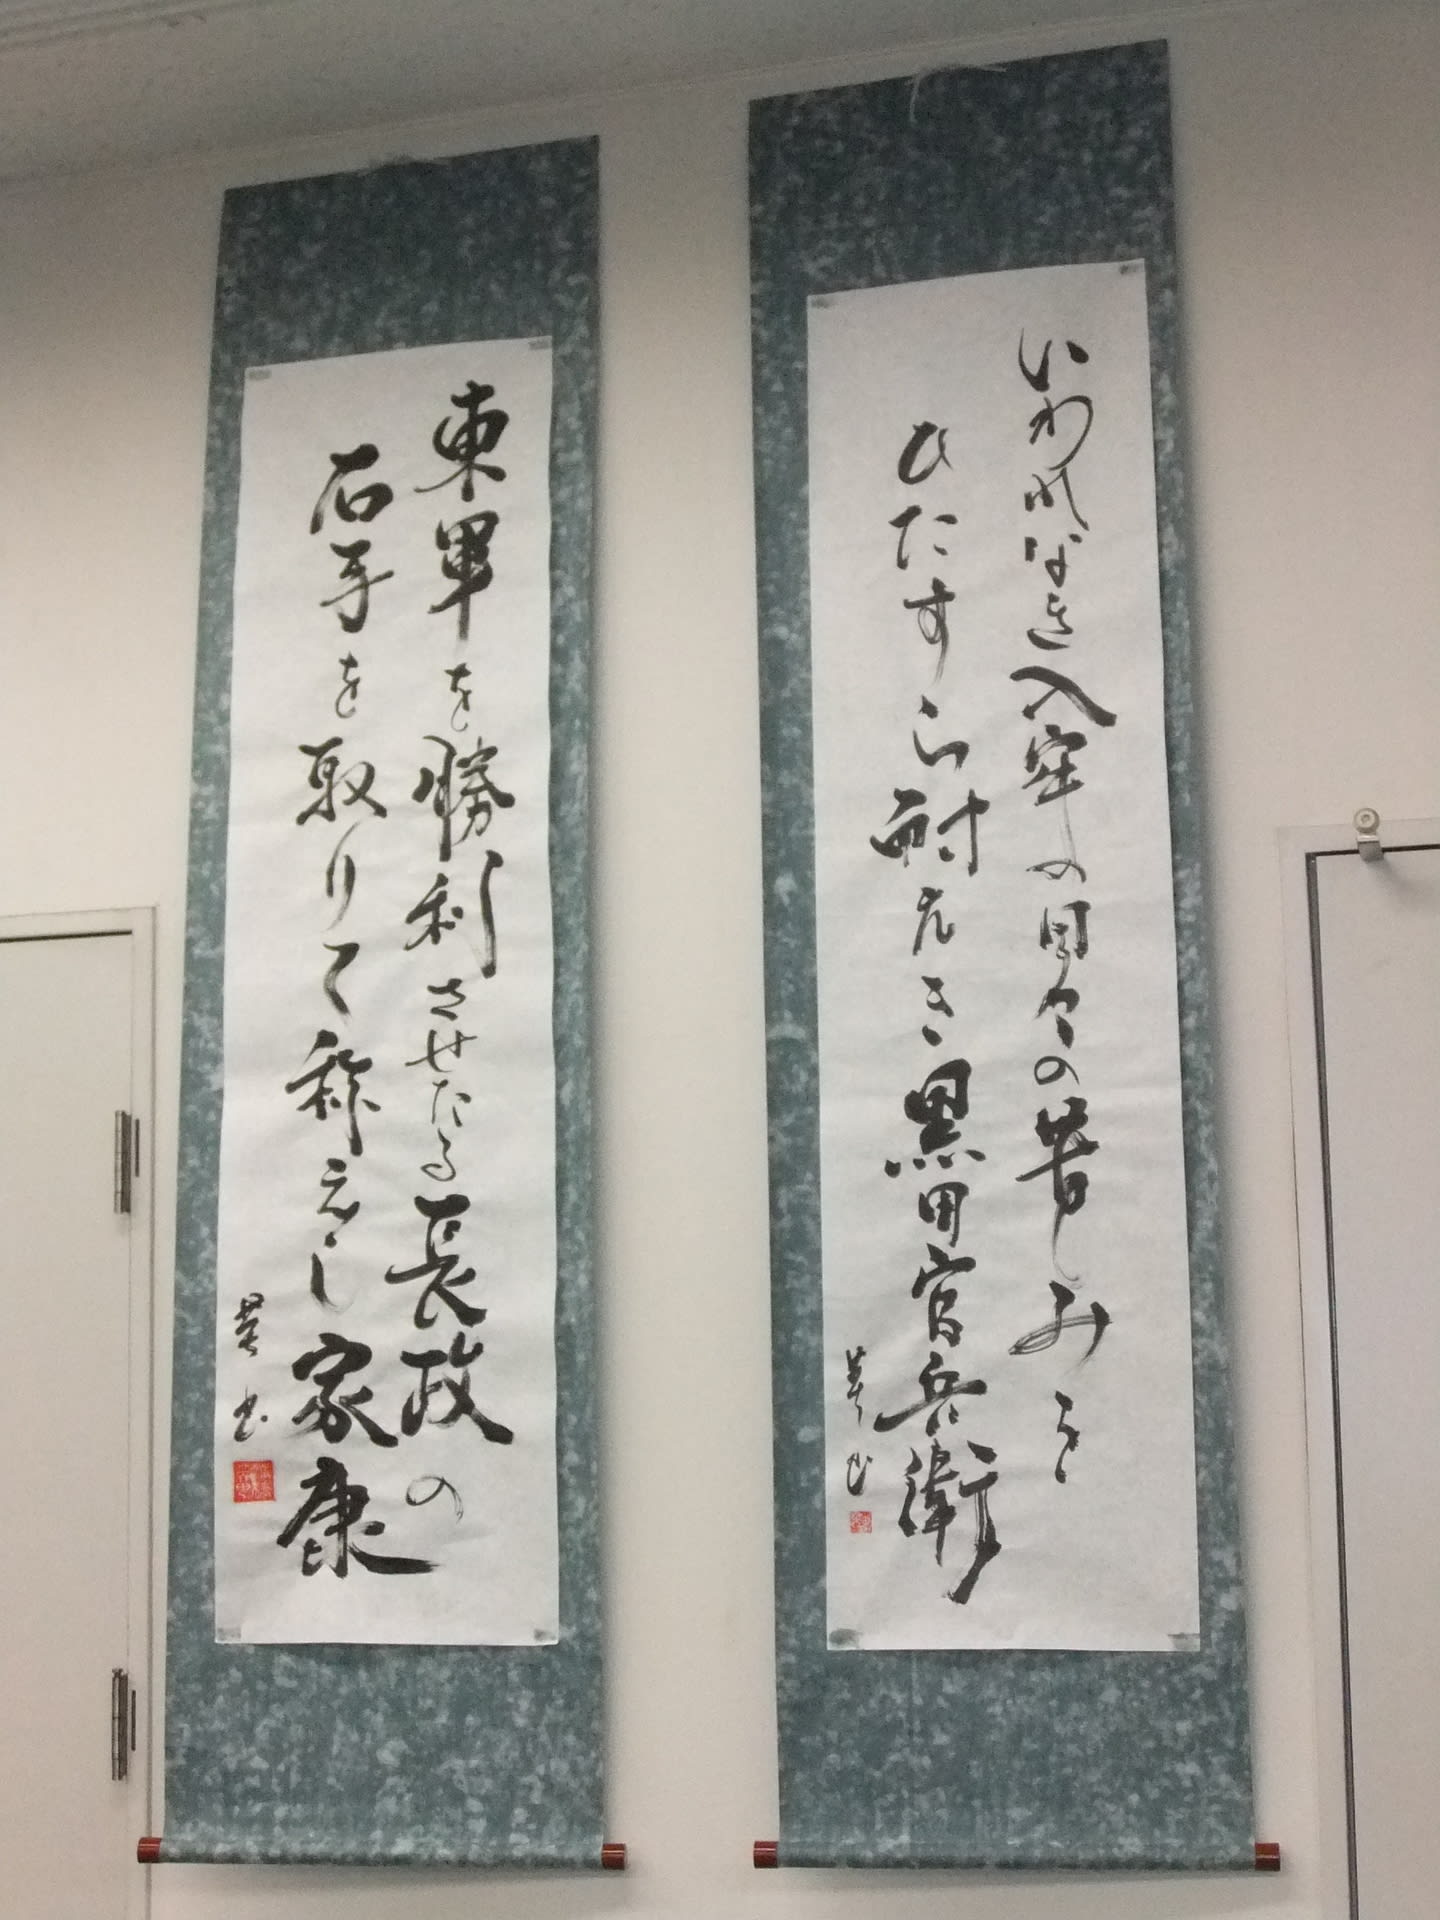 いわれなき入牢の日々の苦しみを
ひたすら耐えたき黒田官兵衛
東軍を勝利させたる長政の
右手を取りて称えし家康
書